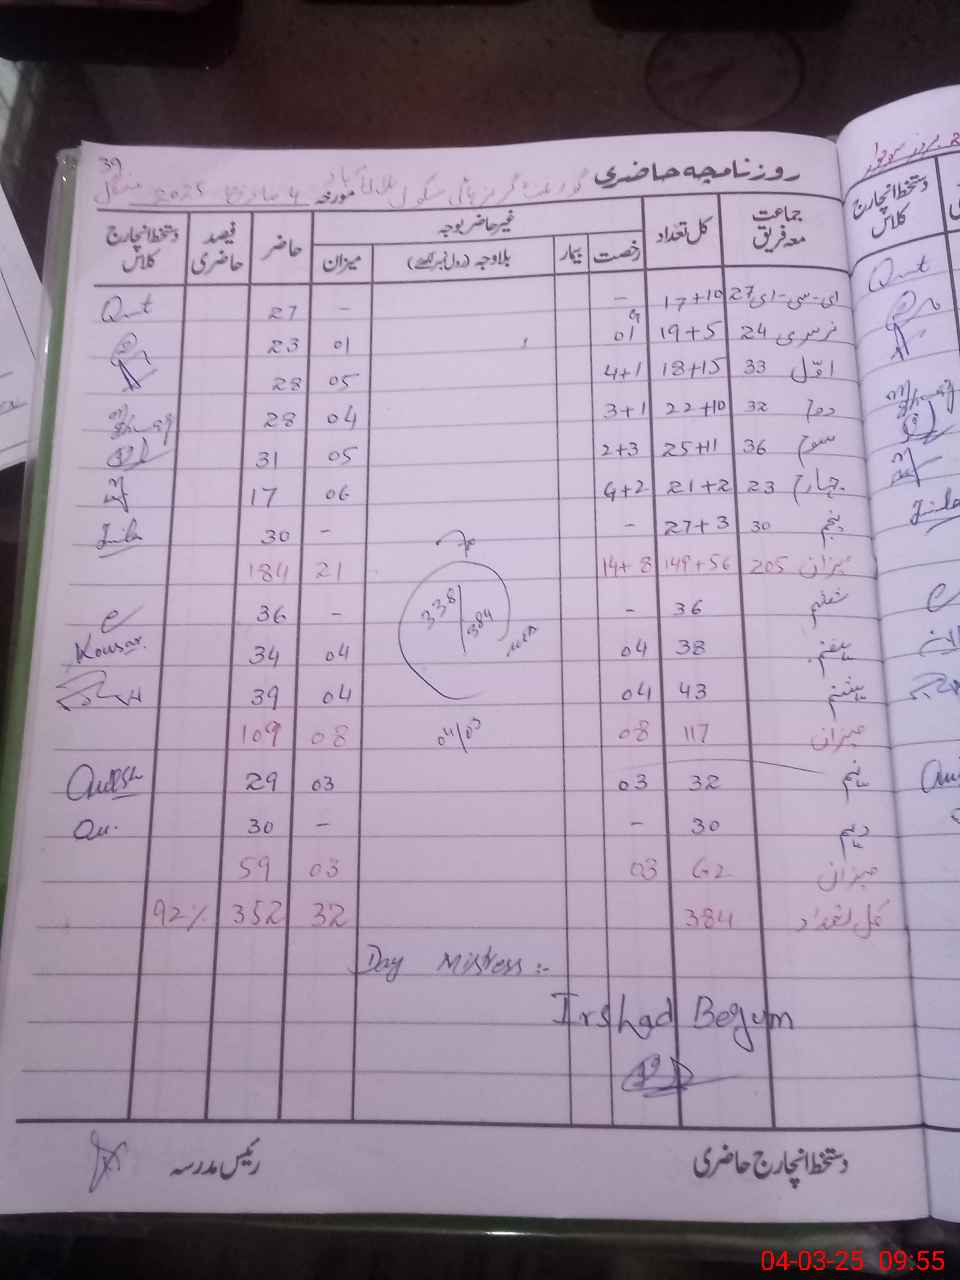 39
روزنامچہ حاضری گورنمنٹ گرلز ہائی سکول مورخہ 4 مارچ 2025 منگل
جماعت معہ فریق کل تعداد غیر حاضر بوجہ حاضر فیصد حاضری دستخط انچارج کلاس
رخصت بیمار بلاوجہ (رول نمبر لکھیے) میزان
ای-سی-ای 27 17+10 – – 27
نرسری 24 19+5 01 01 23
اوّل 33 18+15 4+1 05 28
دوم 32 22+10 3+1 04 28
سوم 36 25+11 2+3 05 31
چہارم 23 21+2 4+2 06 17
پنجم 30 27+3 – – 30
میزان 205 149+56 14+8 21 184
ششم 36 – – 36
ہفتم 38 04 04 34 Kousar.
ہشتم 43 04 04 39
میزان 117 08 08 109
نہم 32 03 03 29
دہم 30 – – 30
میزان 62 03 03 59
کل تعداد 384 32 352 92%
338/384
04/03
Day Mistress :-
Irshad Begum
دستخط انچارج حاضری رئیس مدرسہ
دستخط انچارج کلاس
04-03-25 09:55